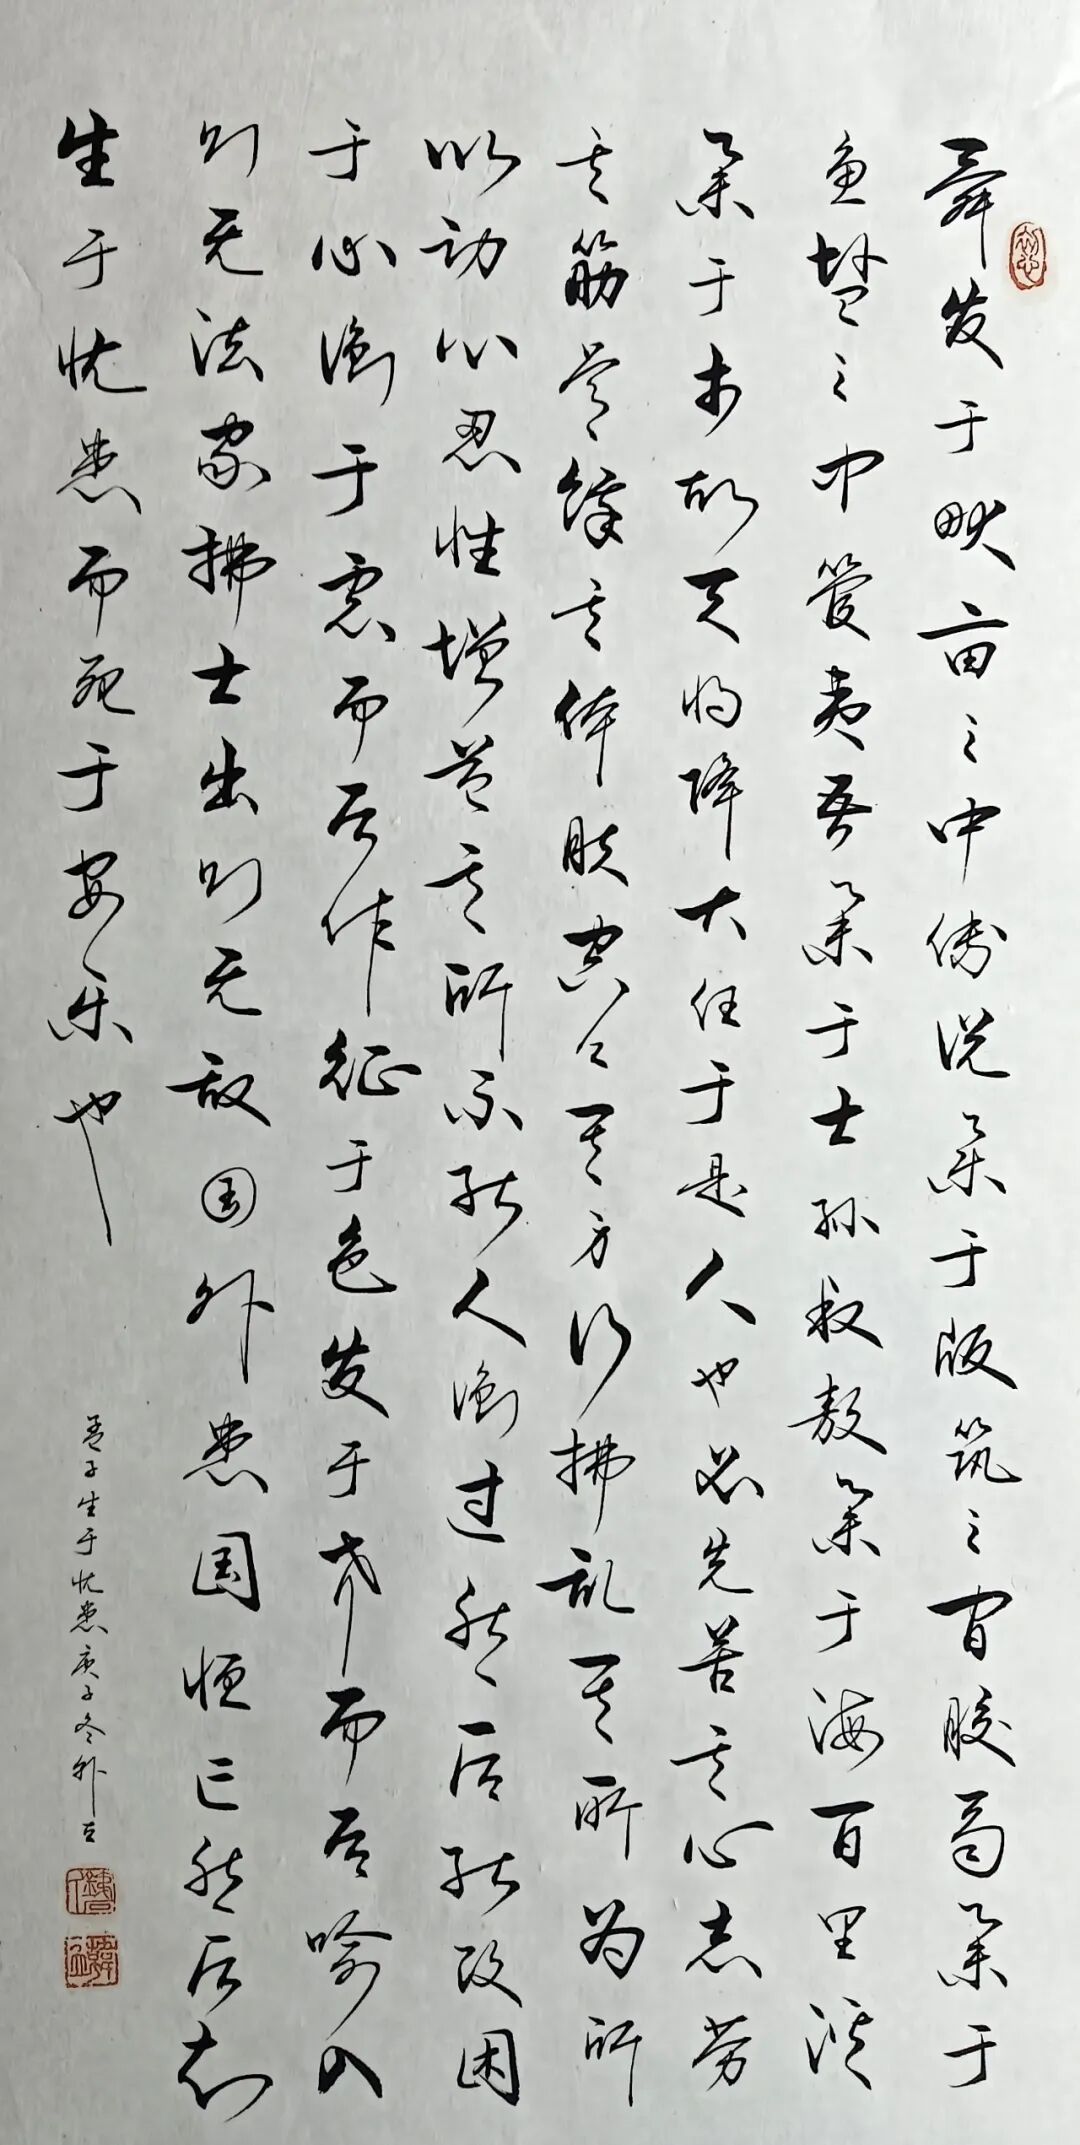 舜发于畎亩之中傅说举于版筑之间胶鬲举于
鱼盐之中管夷吾举于士孙叔敖举于海百里溪
举于市故天将降大任于是人也必先苦其心志劳
其筋骨饿其体肤空乏其身行拂乱其所为所
以动心忍性增益其所不能人衡过然后能改困
于心衡于虑而后作征于色发于声而后喻入
则无法家拂士出则无敌国外患国恒亡然后知
生于忧患而死于安乐也
孟子生于忧患庚子冬